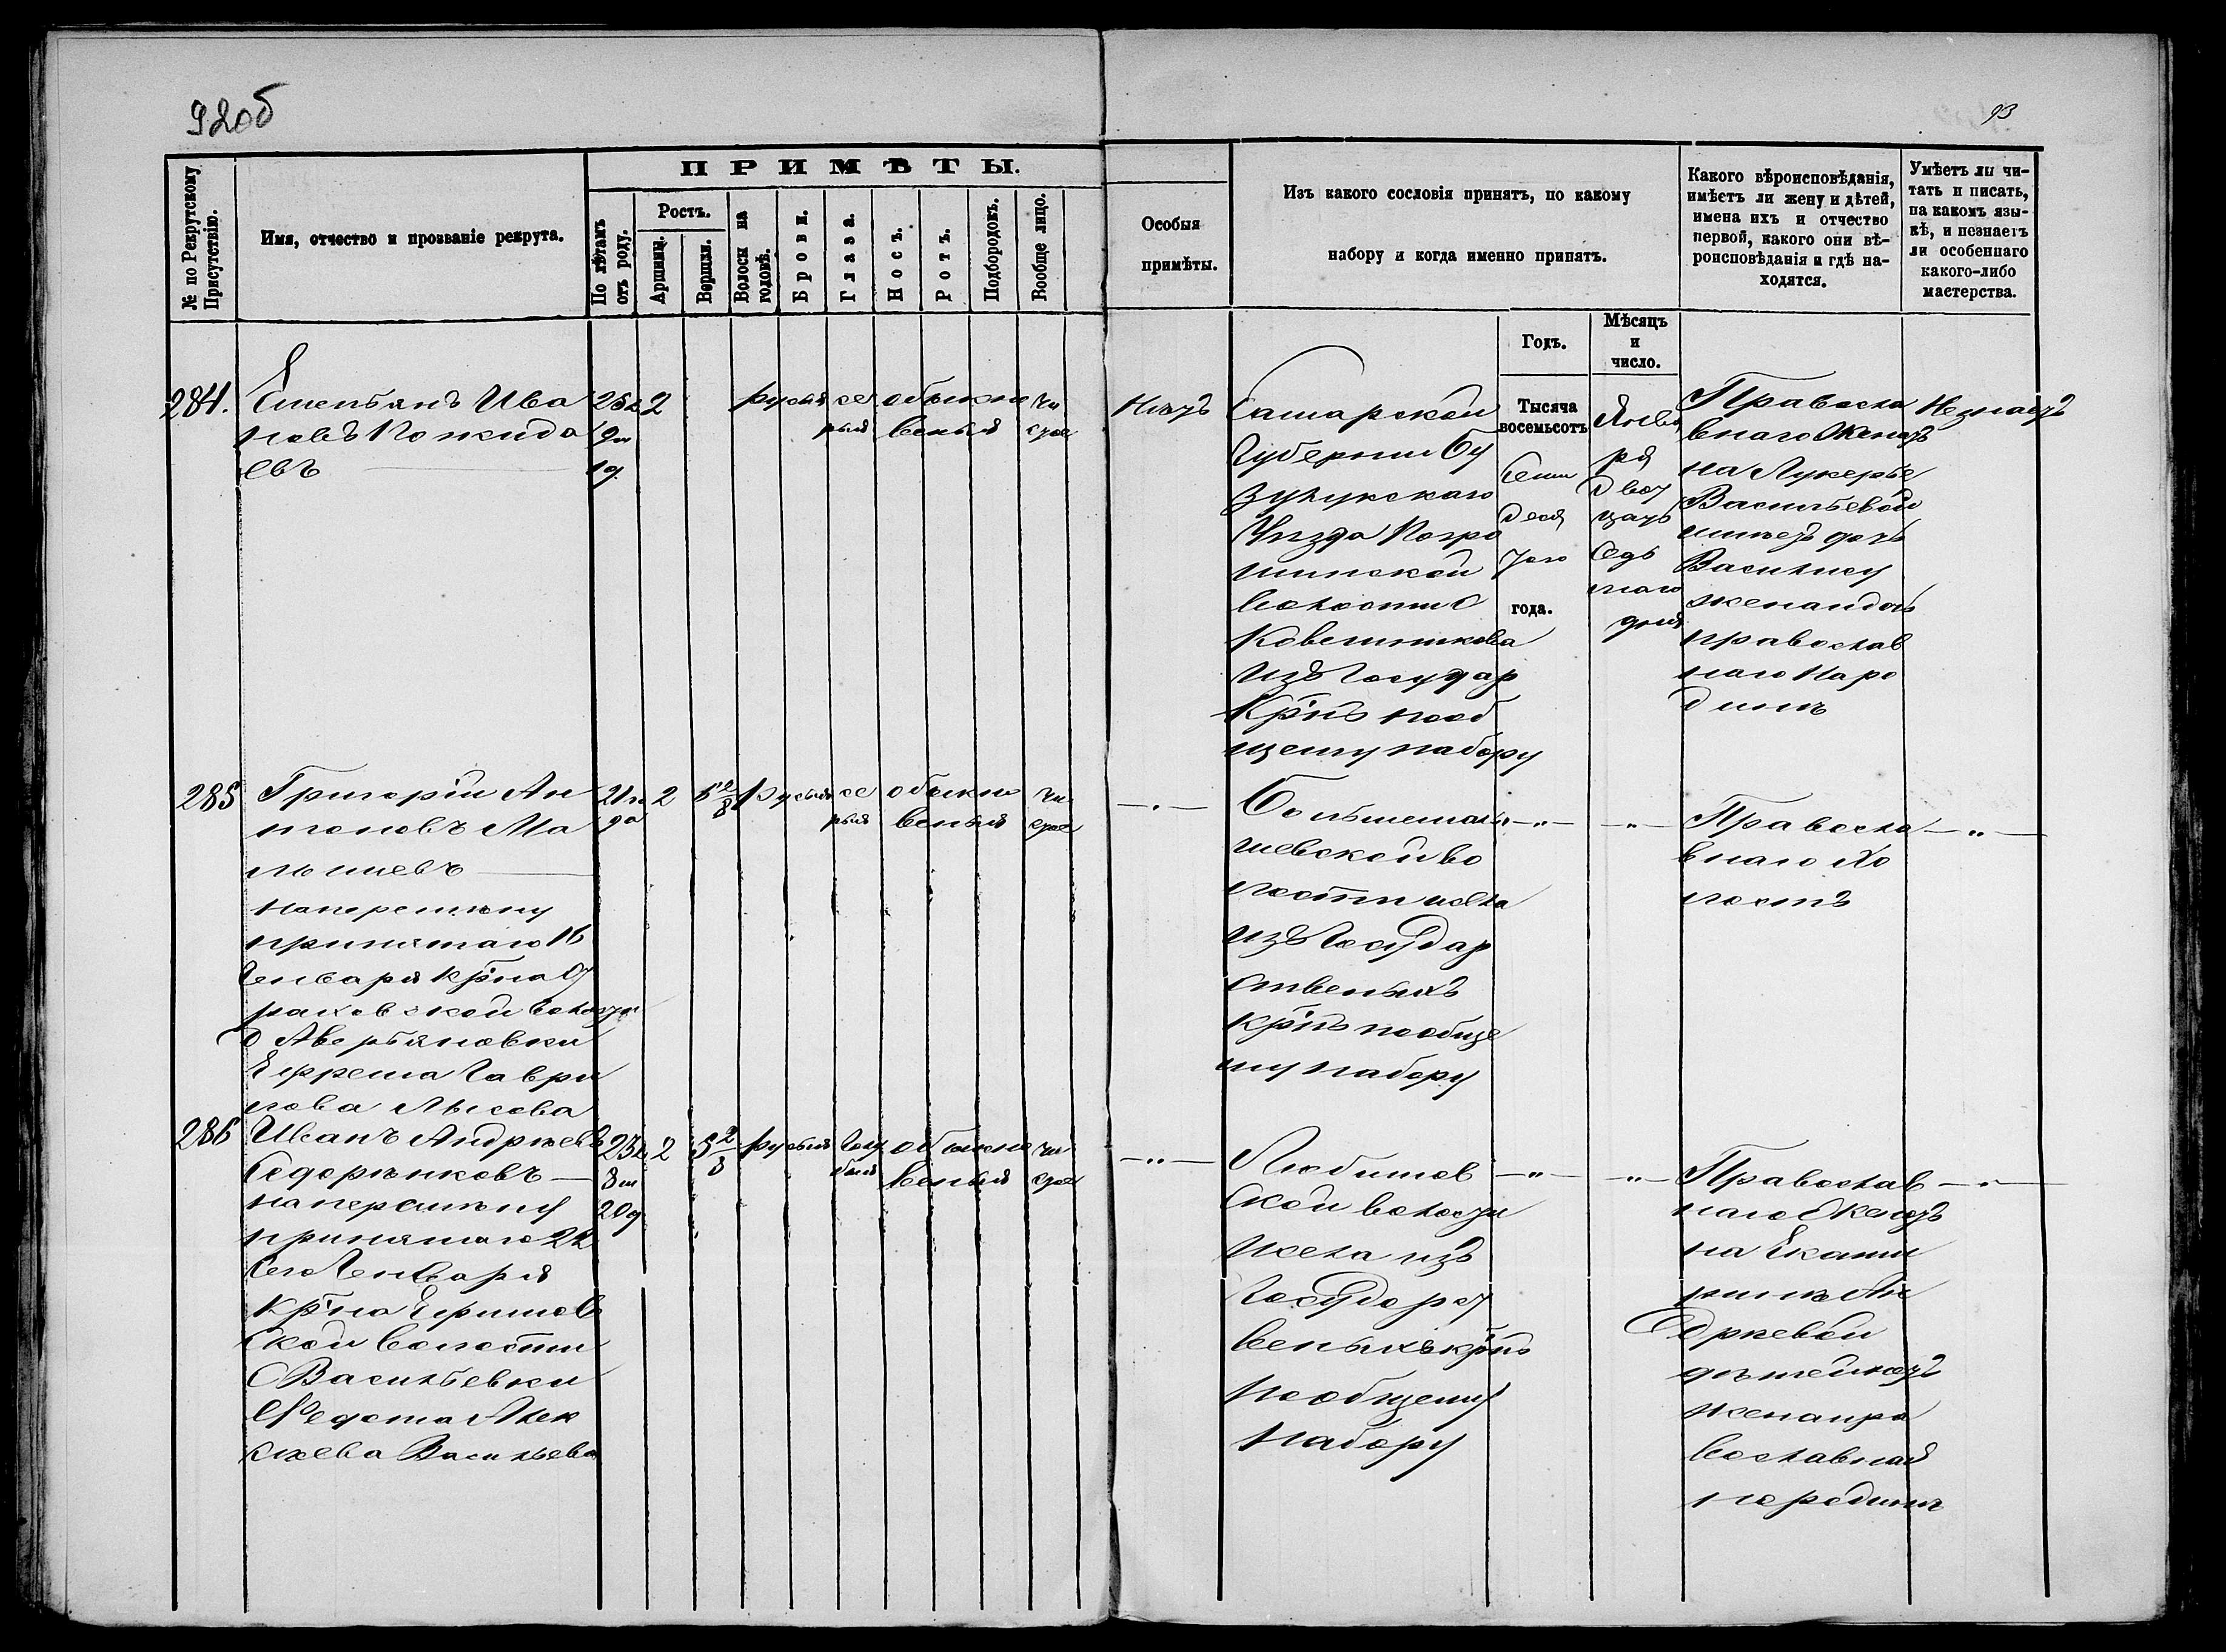 92об
93
ПРИМѢТЫ.
№ по Рекрутскому Присутствію.
Имя, отчество и прозваніе рекрута.
По лѣтамъ отъ роду.
Ростъ.
Аршинъ.
Вершки.
Волосы на головѣ.
Брови.
Глаза.
Носъ.
Ротъ.
Подбородокъ.
Вообще лицо.
Особыя
примѣты.
Изъ какого сословія принятъ, по какому
набору и когда именно принятъ.
Годъ.
Мѣсяцъ
и
число.
Какого вѣроисповѣданія,
имѣетъ ли жену и дѣтей,
имена ихъ и отчество
первой, какого они вѣ-
роисповѣданія и гдѣ на-
ходятся.
Умѣетъ ли чи-
тать и писать,
на какомъ язы-
кѣ, и незнаетъ
ли особеннаго
какого-либо
мастерства.
284.
Емельянъ Ива
новъ
евъ
2
русыя
се
рыя
обыкно
веныя
чи
стое
Нѣтъ
Самарской
Губерніи Бу
зулукскаго
Уѣзда Погро
минской
волости С
изъ Государ
Кр҃нъ пооб
щему набору
Тысяча
восемьсотъ
Семи
деся
таго
года.
Янва
ря
Двад
цать
Седь
маго
дня
Правосла
внаго Женатъ
на Лукерье
Васильевой
имѣетъ дочь
Василису
жена и дочь
православ
наго На ро
динѣ
Незнаетъ
285
Григорій Ан
тоновъ Ма
мышевъ
на перемѣну
принятаго 16
Генваря кр҃на
волости
д Аверьяновки
Ефрема Гаври
лова Лысова
21 л
2
русыя
се
рыя
обыкно
веныя
чи
стое
— " —
шевской во
лости села
изъ Государ
ственыхъ
кр҃нъ пообще
му набору
— " —
— " —
Правосла
внаго Хо
лостъ
— " —
286
Иванъ Андрѣевъ
на перемѣну
принятаго 22
сего Генваря
кр҃на
ской волости
С Васильевки
Федота Алек
сѣева Васильева
23 л
8 м
20 д
2
5 2/8
русыя
Голу
быя
обыкно
веныя
чи
стое
— " —
Любимов
ской волости
и села изъ
Государст
веныхъ кр҃нъ
пообщему
набору
— " —
— " —
Православ
наго Женатъ
на Екате
ринѣ Ан
дреевой
дѣтей нетъ
жена пра
вославная
на родинѣ
— " —